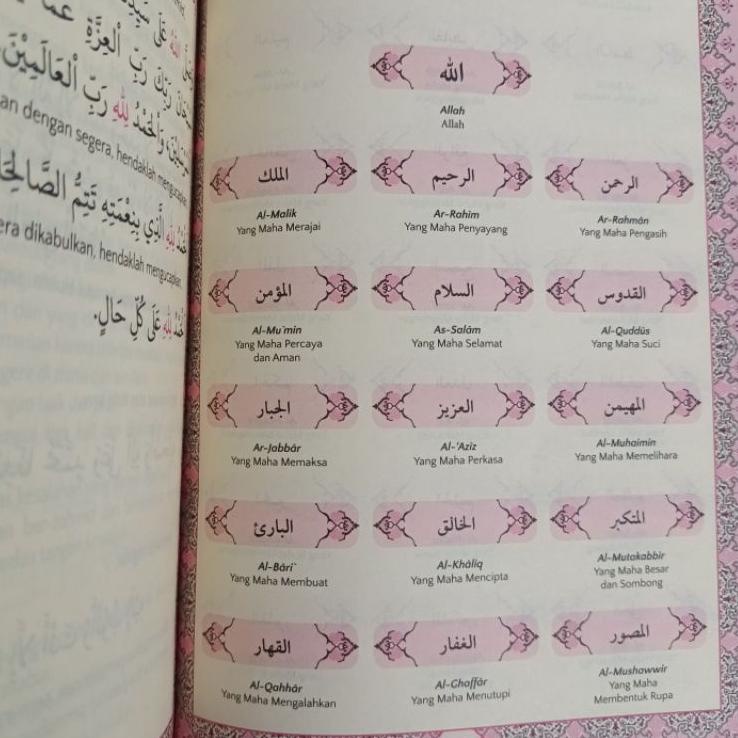 اللهُ عَلَى
رَبِّكَ رَبِّ الْعِزَّةِ عَمَّا
وَالْحَمْدُ لِلّٰهِ رَبِّ الْعَالَمِيْنَ
dengan segera, hendaklah mengucapkan
لِلّٰهِ الَّذِي بِنِعْمَتِهِ تَتِمُّ
dikabulkan, hendaklah mengucapkan
لِلّٰهِ عَلَى كُلِّ حَالٍ.
الله
Allah
Allah
الرحمن
Ar-Rahmân
Yang Maha Pengasih
الرحيم
Ar-Rahîm
Yang Maha Penyayang
الملك
Al-Malik
Yang Maha Merajai
القدوس
Al-Quddûs
Yang Maha Suci
السلام
As-Salâm
Yang Maha Selamat
المؤمن
Al-Mu`min
Yang Maha Percaya
dan Aman
المهيمن
Al-Muhaimin
Yang Maha Memelihara
العزيز
Al-'Azîz
Yang Maha Perkasa
الجبار
Ar-Jabbâr
Yang Maha Memaksa
المتكبر
Al-Mutakabbir
Yang Maha Besar
dan Sombong
الخالق
Al-Khâliq
Yang Maha Mencipta
البارئ
Al-Bâri`
Yang Maha Membuat
المصور
Al-Mushawwir
Yang Maha
Membentuk Rupa
الغفار
Al-Ghaffâr
Yang Maha Menutupi
القهار
Al-Qahhâr
Yang Maha Mengalahkan